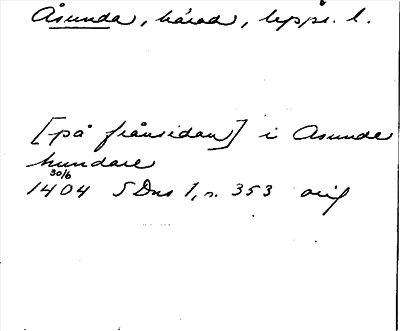 Åsunda, härad, Upps. l.
[på frånsidan] i Asunde
hundare
30/6
1404 SDns 1, s. 353 orig